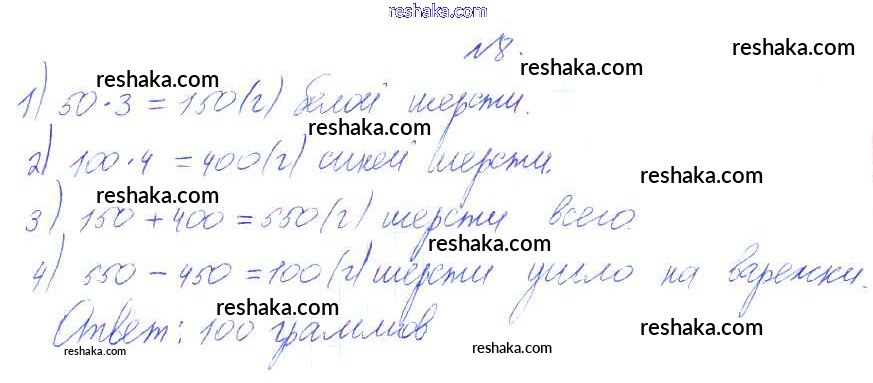 reshaka.com
№8.
reshaka.com
reshaka.com
1) 50·3 = 150 (г) белой шерсти.
reshaka.com
reshaka.com
2) 100·4 = 400 (г) синей шерсти.
reshaka.com
reshaka.com
3) 150 + 400 = 550 (г) шерсти всего.
reshaka.com
4) 550 - 450 = 100 (г) шерсти ушло на варежки.
reshaka.com
Ответ: 100 граммов
reshaka.com
reshaka.com
reshaka.com